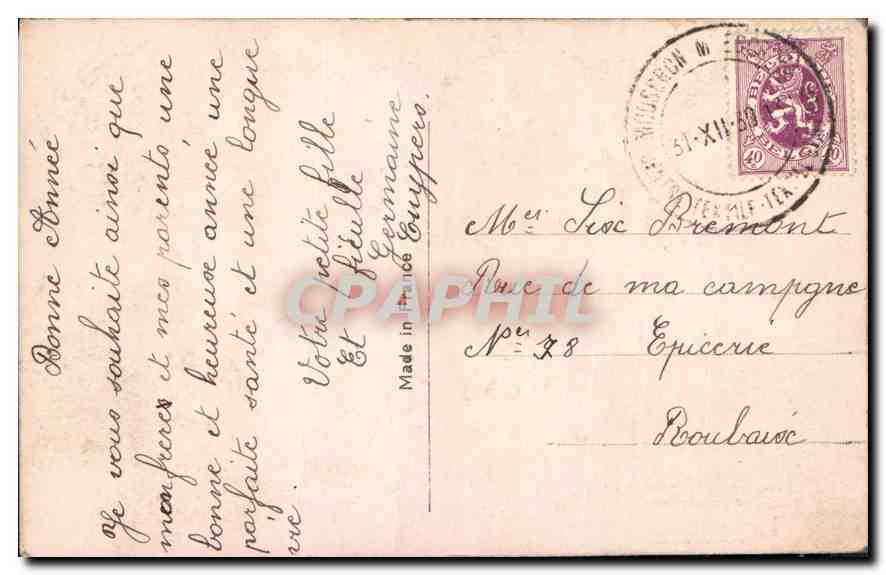 Bonne Année
Je vous souhaite ainsi que
mon freres et mes parents une
bonne et heureuse année une
parfaite santé et une longue
vie.
Votre petite fille
Et fieulle
Germaine
Cuypers.
Made in France
Mer Six Bremont
Rue de ma campgne
Ner 78 Epicerie
Roubaix
MOUSCRON
31-XII-30
BELGIE
BELGIQUE
40 40
CPAPHIL